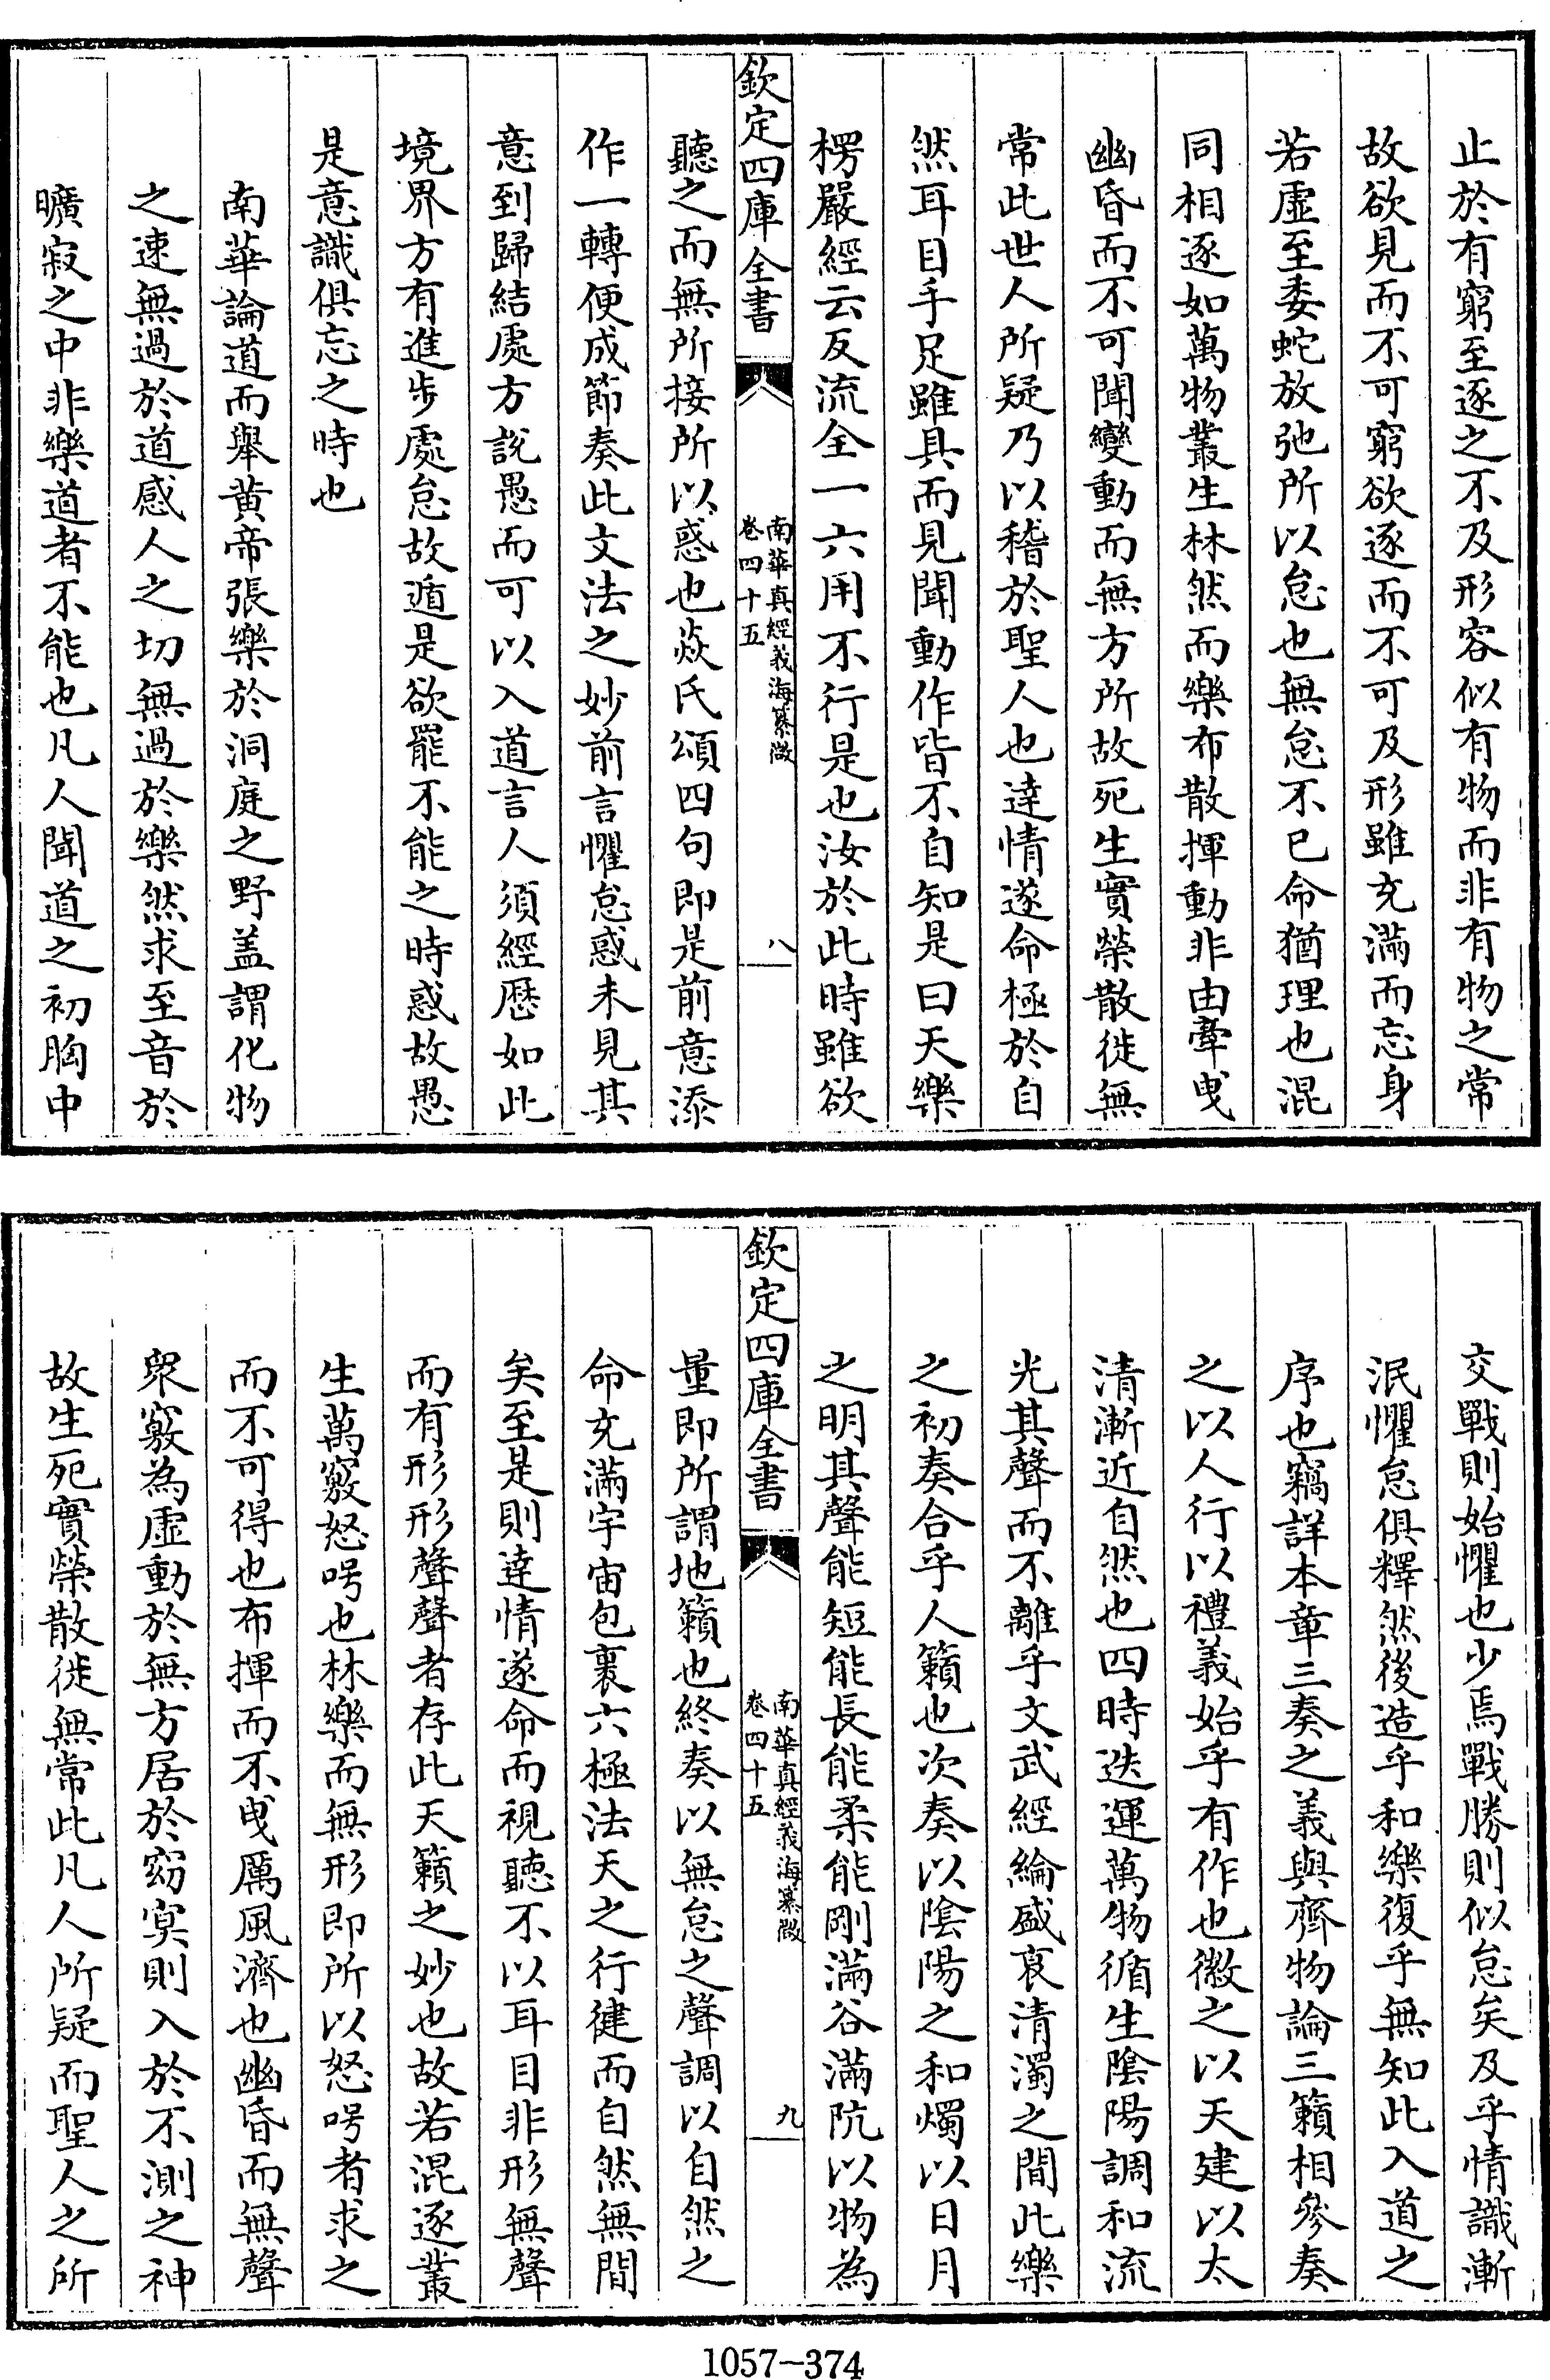 止於有窮至逐之不及形容似有物而非有物之常
故欲見而不可窮欲逐而不可及形雖充滿而忘身
若虛至委蛇放弛所以怠也無怠不已命猶理也混
同相逐如萬物叢生林然而樂布散揮動非由牽曵
幽昏而不可聞變動而無方所故死生實榮散徙無
常此世人所疑乃以稽於聖人也達情遂命極於自
然耳目手足雖具而見聞動作皆不自知是曰天樂
楞嚴經云反流全一六用不行是也汝於此時雖欲
欽定四庫全書
南華真經義海纂微
卷四十五
八
聽之而無所接所以惑也焱氏頌四句即是前意添
作一轉便成節奏此文法之妙前言懼怠惑未見其
意到歸結處方說愚而可以入道言人須經歷如此
境界方有進步處怠故遁是欲罷不能之時惑故愚
是意識俱忘之時也
南華論道而舉黄帝張樂於洞庭之野盖謂化物
之速無過於道感人之切無過於樂然求至音於
曠寂之中非樂道者不能也凡人聞道之初胸中
交戰則始懼也少焉戰勝則似怠矣及乎情識漸
泯懼怠俱釋然後造乎和樂復乎無知此入道之
序也竊詳本章三奏之義與齊物論三籟相參奏
之以人行以禮義始乎有作也徽之以天建以太
清漸近自然也四時迭運萬物循生隂陽調和流
光其聲而不離乎文武經綸盛衰清濁之間此樂
之初奏合乎人籟也次奏以隂陽之和燭以日月
之明其聲能短能長能柔能剛滿谷滿阬以物為
欽定四庫全書
南華真經義海纂微
卷四十五
九
量即所謂地籟也終奏以無怠之聲調以自然之
命充滿宇宙包裹六極法天之行健而自然無間
矣至是則達情遂命而視聽不以耳目非形無聲
而有形形聲聲者存此天籟之妙也故若混逐叢
生萬竅怒呺也林樂而無形即所以怒呺者求之
而不可得也布揮而不曵厲風濟也幽昏而無聲
衆竅為虛動於無方居於窈冥則入於不測之神
故生死實榮散徙無常此凡人所疑而聖人之所
1057-374